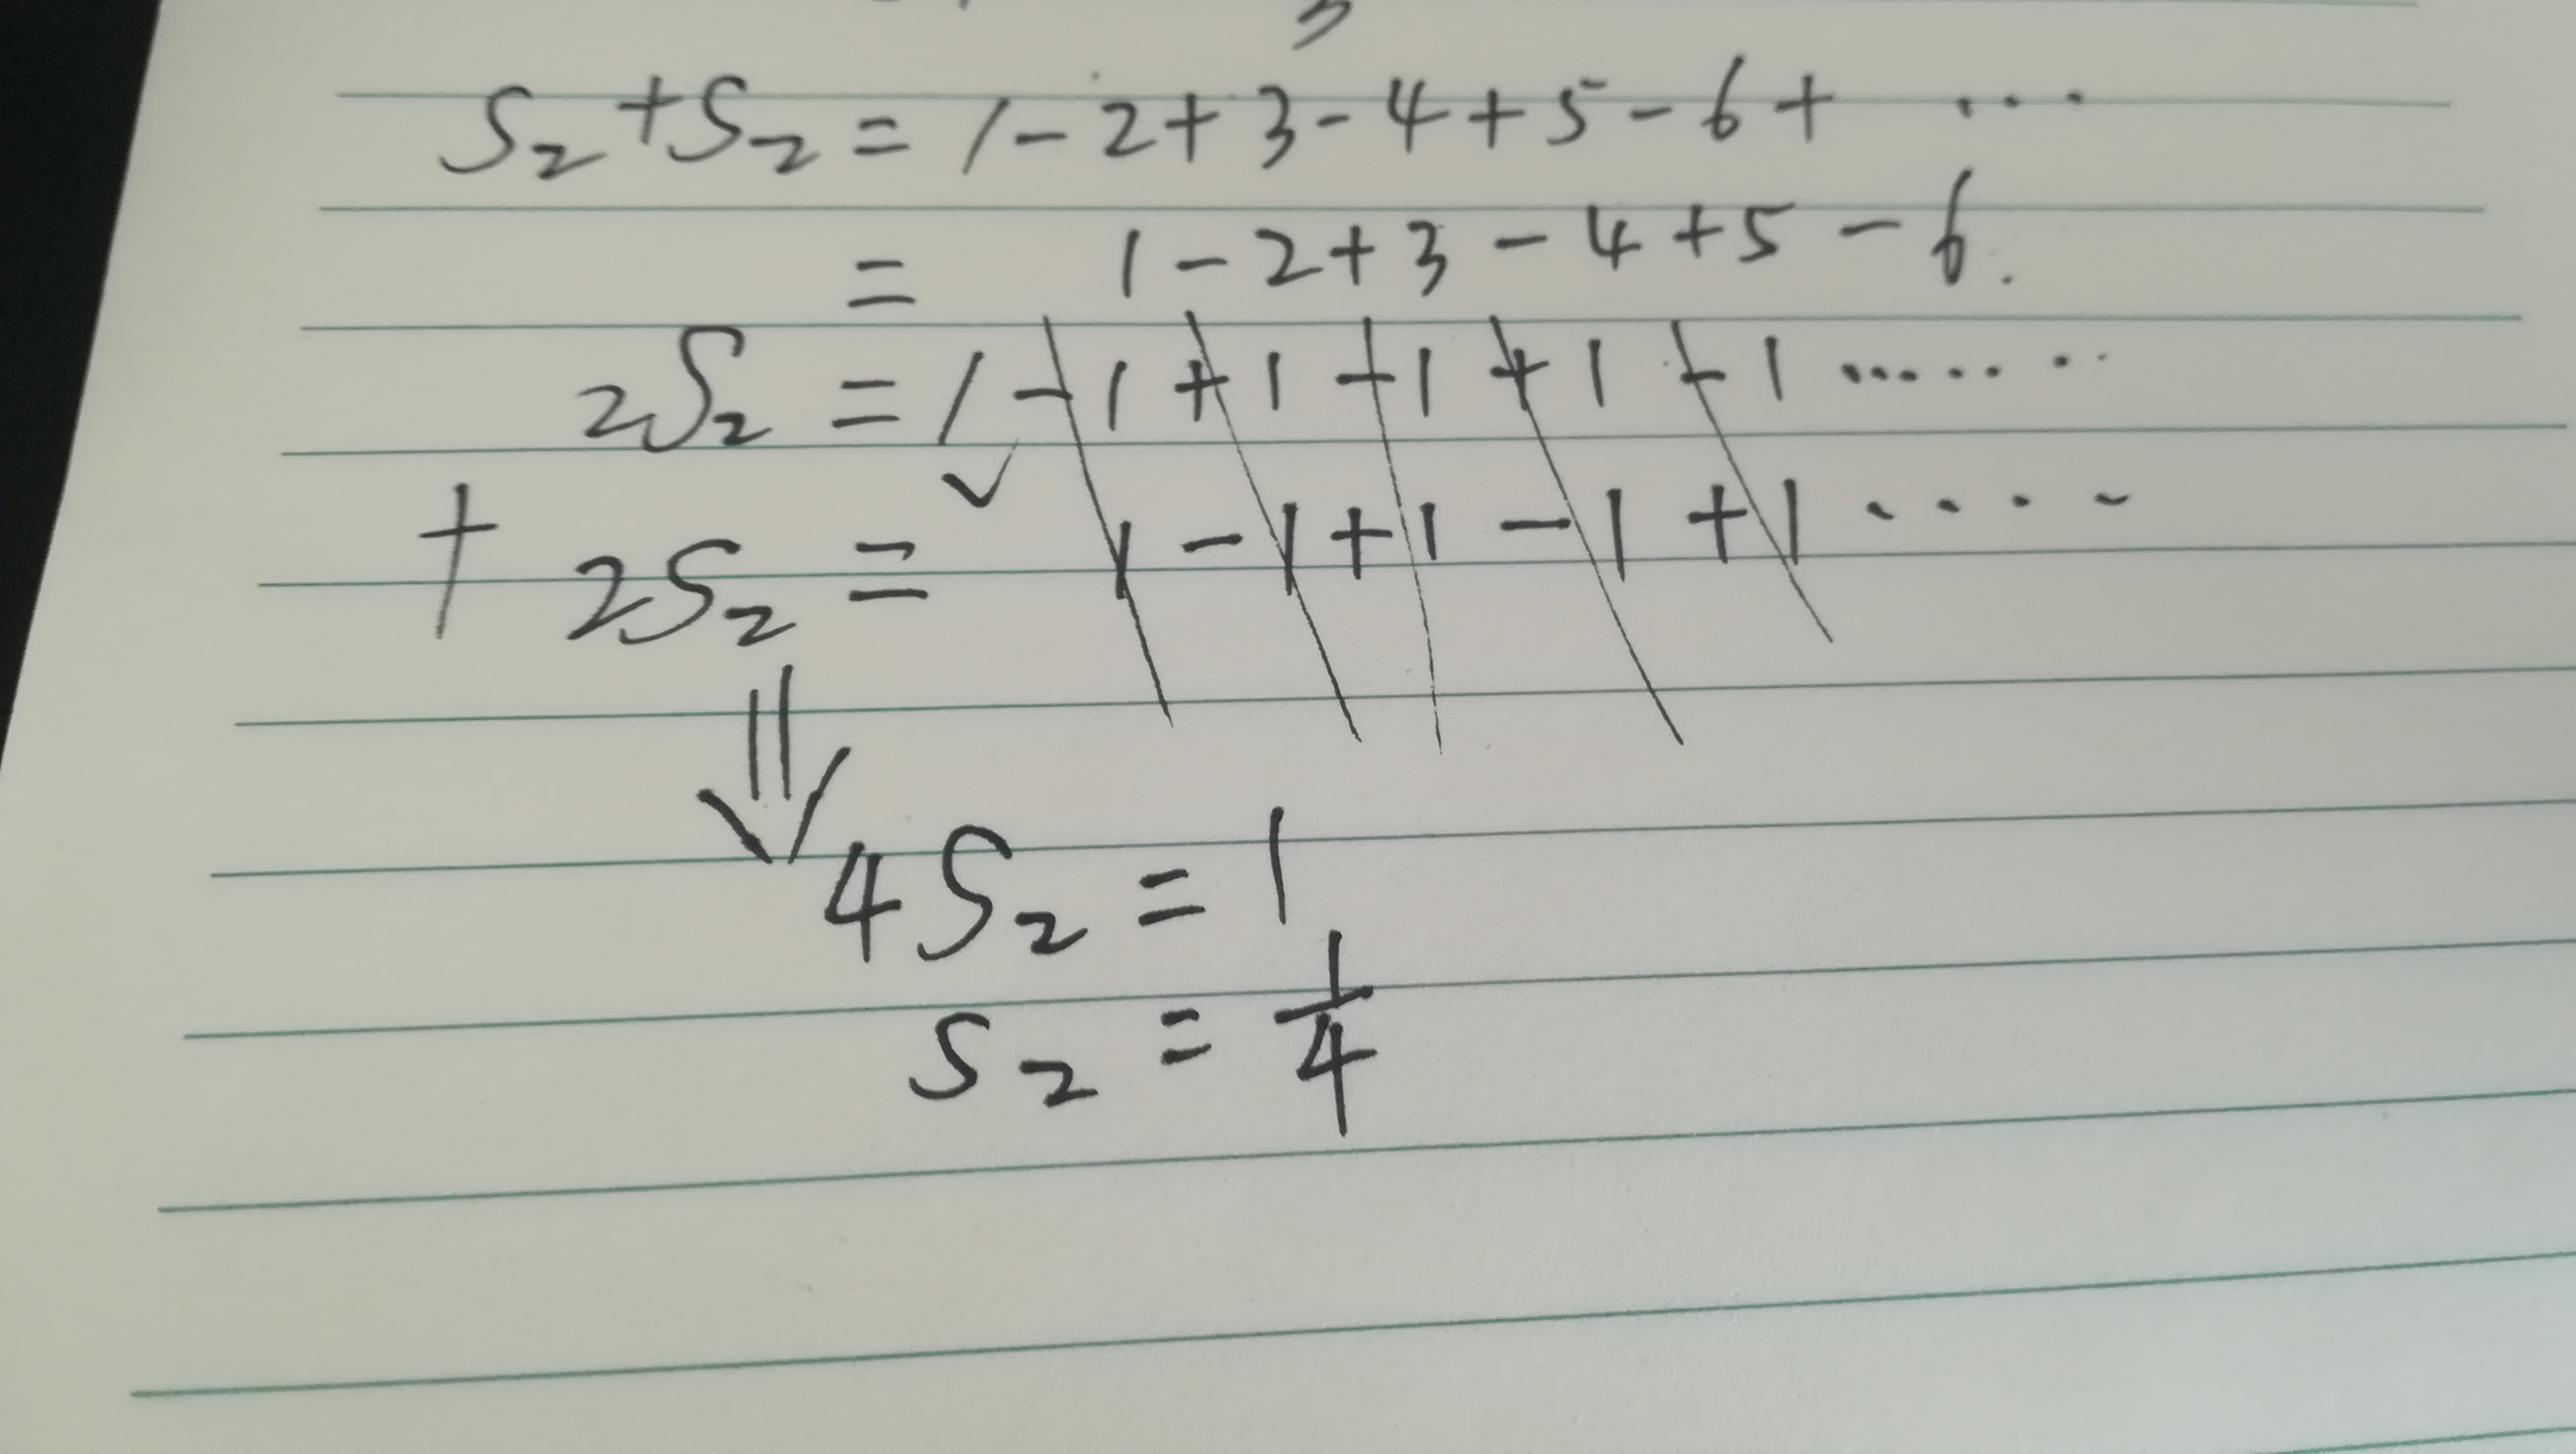 S₂+S₂ = 1-2+3-4+5-6+ ...
= 1-2+3-4+5-6.
2S₂ = 1-1+1-1+1-1.........
✓
+ 2S₂ = 1-1+1-1+1....
⇓
4S₂ = 1
S₂ = 1/4